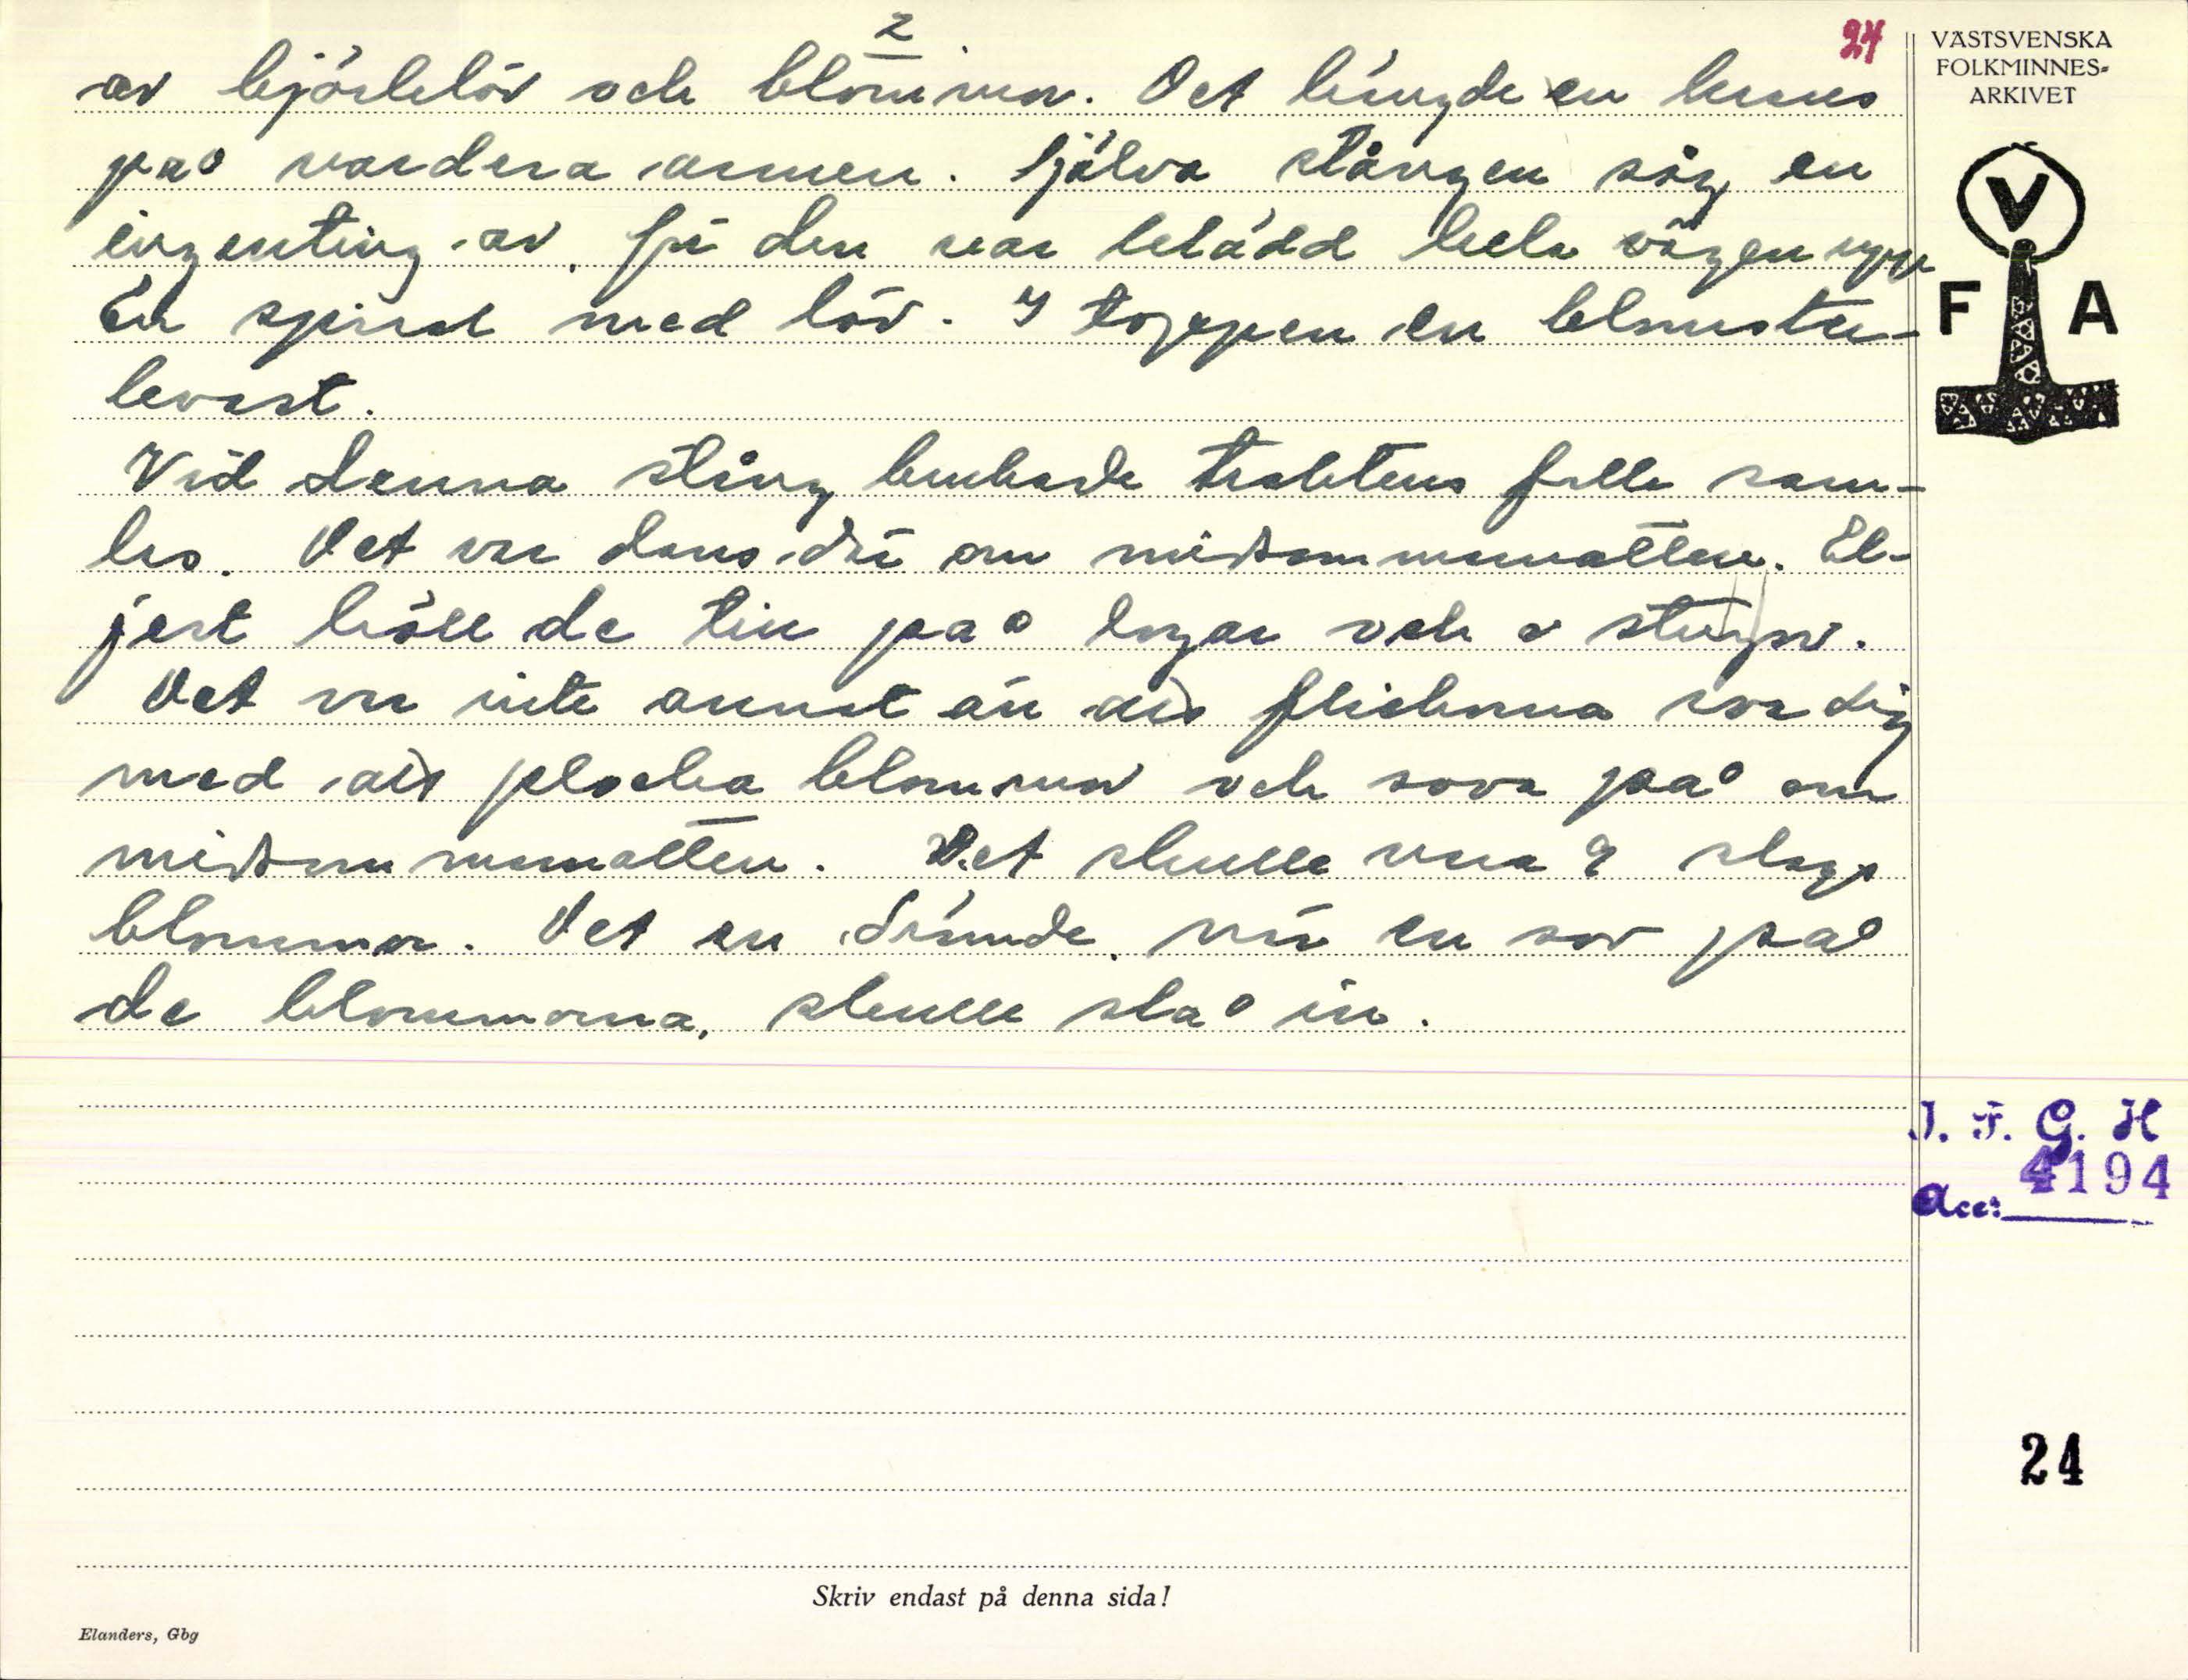 2
24
av björkelöv och blommor. Det hängde en krans
på vardera armen. Själva stången såg en
ingenting av, för den var beklädd hela vägen upp
En spiral med löv. I toppen en blomster-
kvast.
Vid denna stång brukade traktens folk sam-
las. Det var dans där om midsommarnatten. El-
jest höll de till på logar och i stugor.
Det var inte annat än att flickorna roade sig
med att plocka blommor och sova på om
midsommarnatten. Det skulle vara 9 slags
blommor. Det en drömde, när en sov på
de blommorna, skulle slå in.
VÄSTSVENSKA
FOLKMINNES-
ARKIVET
V
F A
I. F. G. H
4194
Acc:
24
Skriv endast på denna sida!
Elanders, Gbg